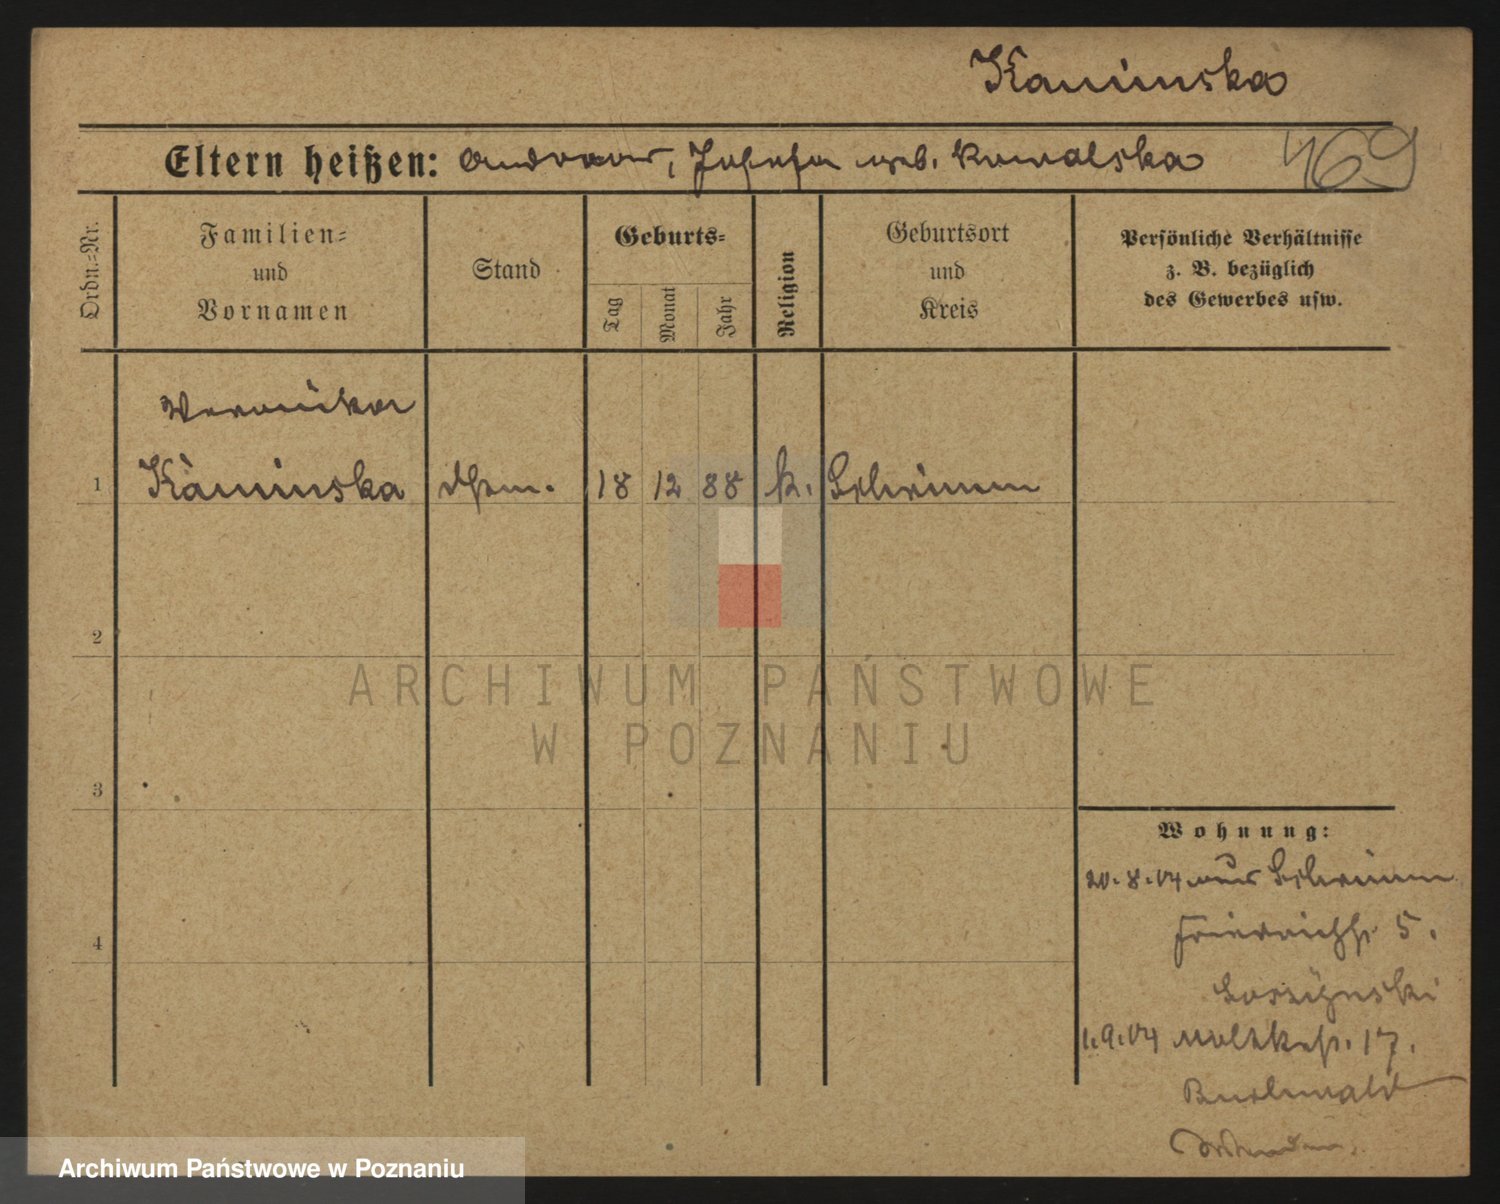 Kaminska
Eltern heißen: Andreas, Josefa geb. Kowalska 469
Ordn.-Nr.
Familien-
und
Vornamen
Stand
Geburts-
Tag
Monat
Jahr
Religion
Geburtsort
und
Kreis
Persönliche Verhältnisse
z. B. bezüglich
des Gewerbes usw.
Veronika
1 Kaminska 18 12 88 k. Schrimm
2
3
4
ARCHIWUM PAŃSTWOWE
W POZNANIU
Wohnung:
20.8.04 aus Schrimm
Friedrichstr. 5.
1.9.04 Moltkestr. 17.
Buchwald
Archiwum Państwowe w Poznaniu